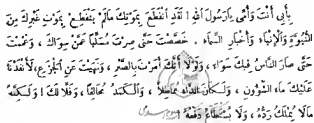 بِأَبِي أَنْتَ وَأُمِّي يَا رَسُولَ اللهِ! لَقَدِ انْقَطَعَ بِمَوْتِكَ مَا لَمْ يَنْقَطِعْ بِمَوْتِ غَيْرِكَ مِنَ
النُّبُوَّةِ وَالْإِنْبَاءِ وَأَخْبَارِ السَّمَاءِ. خَصَّصْتَ حَتَّى صِرْتَ مُسَلِّيًا عَمَّنْ سِوَاكَ، وَعَمَمْتَ
حَتَّى صَارَ النَّاسُ فِيكَ سَوَاءً، وَلَوْلَا أَنَّكَ أَمَرْتَ بِالصَّبْرِ، وَنَهَيْتَ عَنِ الْجَزَعِ، لَأَنْفَدْنَا
عَلَيْكَ مَاءَ الشُّؤُونِ، وَلَكَانَ الدَّاءُ مُمَاطِلًا، وَالْكَمَدُ مُحَالِفًا، وَقَلَّا لَكَ! وَلَكِنَّهُ
مَا لَا يُمْلَكُ رَدُّهُ، وَلَا يُسْتَطَاعُ دَفْعُهُ!